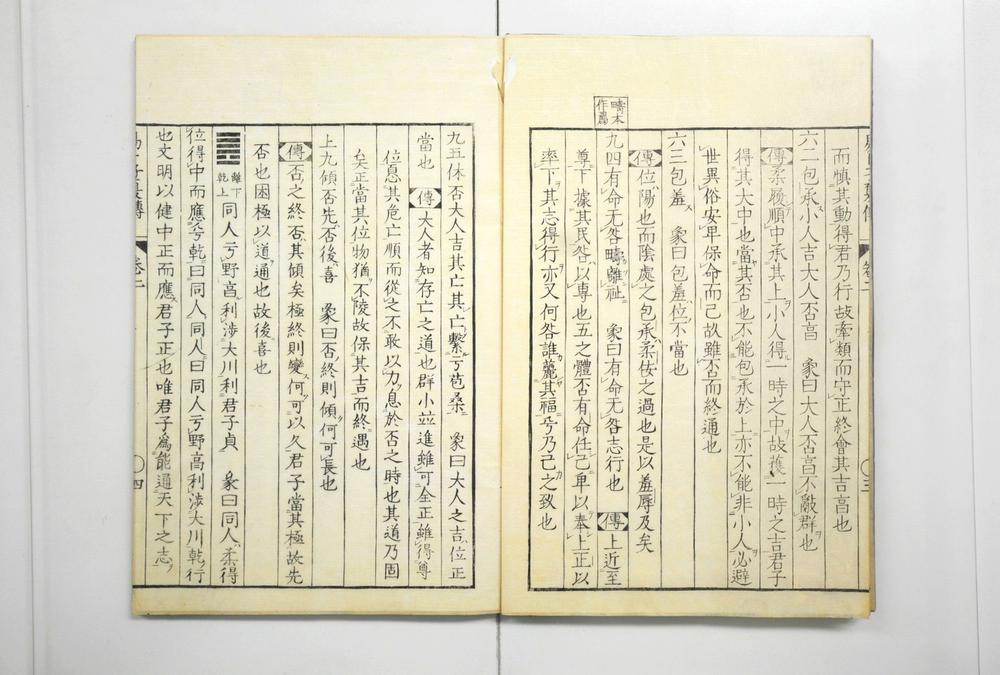 疇本
作
而慎其動得君乃行故牽類而守正終會其吉亯也
六二包承小人吉大人否亯　象曰大人否亯不亂群也
傳柔履順中承其上小人得一時之中故獲一時之吉君子
得其大中也當其否也不能包承於上亦不能非小人必避
世異俗安卑保命而已故雖否而終通也
六三包羞　象曰包羞位不當也
傳位陽也而陰處之包承柔佞之過也是以羞辱及矣
九四有命无咎疇離祉　象曰有命无咎志行也　傳上近至
尊下據其民咎以專也五之體否有命任己卑以奉上正以
率下其志得行亦又何咎誰離其福乎乃己之致也
卷二
〇三
九五休否大人吉其亡其亡繫亏苞桑　象曰大人之吉位正
當也　傳大人者知存亡之道也群小竝進雖可全正雖得尊
位息其危亡順而從之不敢以力息於否之時也其道乃固
矣正當其位物猶不陵故保其吉而終遇也
上九傾否先否後喜　象曰否終則傾何可長也
傳否之終否其傾矣極終則變何可以久君子當其極故先
否也困極以道通也故後喜也
離下乾上同人亏野亯利涉大川利君子貞　彖曰同人柔得
位得中而應乎乾曰同人同人曰同人亏野亯利涉大川乾行
也文明以健中正而應君子正也唯君子爲能通天下之志
子夏傳
卷二
〇四